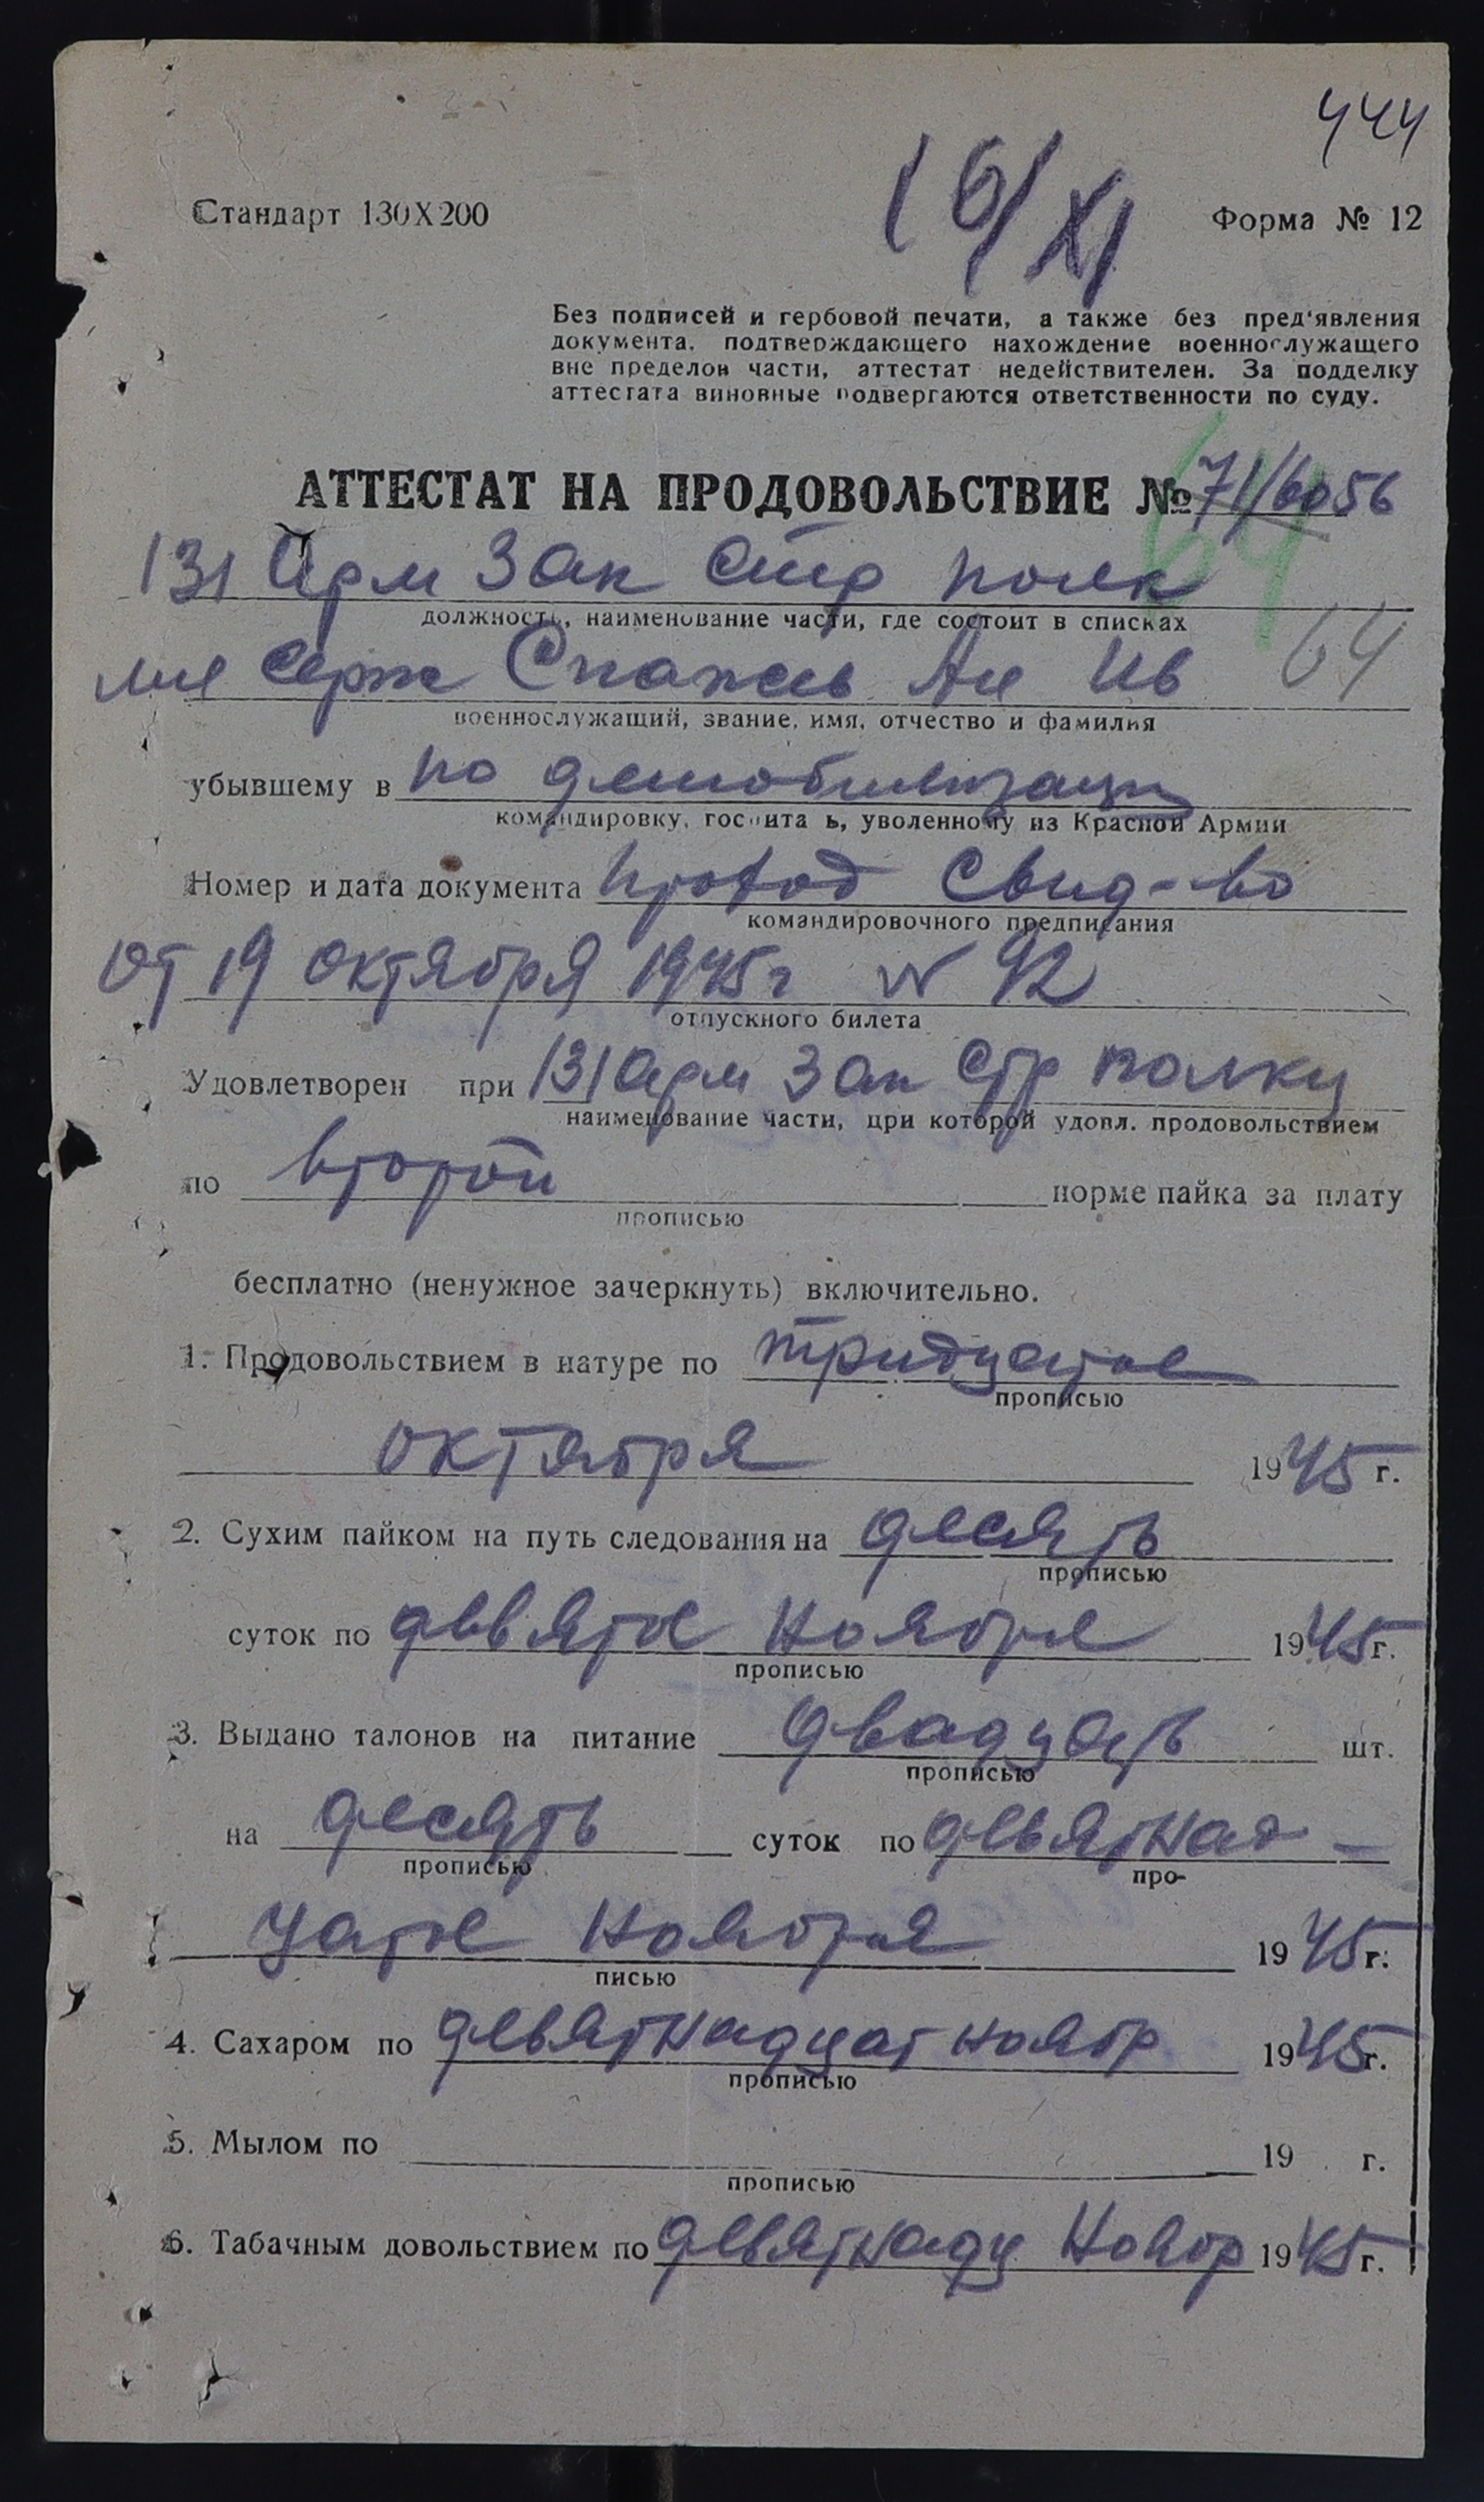 444
16/XI
Стандарт 130X200
Форма № 12
Без подписей и гербовой печати, а также без пред'явления
документа, подтверждающего нахождение военнослужащего
вне пределов части, аттестат недействителен. За подделку
аттестата виновные подвергаются ответственности по суду.
64
АТТЕСТАТ НА ПРОДОВОЛЬСТВИЕ № 71/6056
131 Арм Зап Стр полк
должность, наименование части, где состоит в списках
64
мл Серж Ал Ив
военнослужащий, звание, имя, отчество и фамилия
убывшему в по демобилизации
командировку, госпиталь, уволенному из Красной Армии
Номер и дата документа Проход Свид-во
командировочного предписания
от 19 октября 1945 г N 92
отпускного билета
Удовлетворен при 131 Арм Зап Стр полку
наименование части, при которой удовл. продовольствием
по второй норме пайка за плату
прописью
бесплатно (ненужное зачеркнуть) включительно.
1. Продовольствием в натуре по тридцатое
прописью
октября 1945 г.
2. Сухим пайком на путь следования на десять
прописью
суток по девятое ноября 1945 г.
прописью
3. Выдано талонов на питание двадцать шт.
прописью
на десять суток по девятнад-
прописью про-
цатое ноября 1945 г.
писью
4. Сахаром по девятнадцат ноябр 1945 г.
прописью
5. Мылом по 19 г.
прописью
6. Табачным довольствием по девятнадц Ноябр 1945 г.